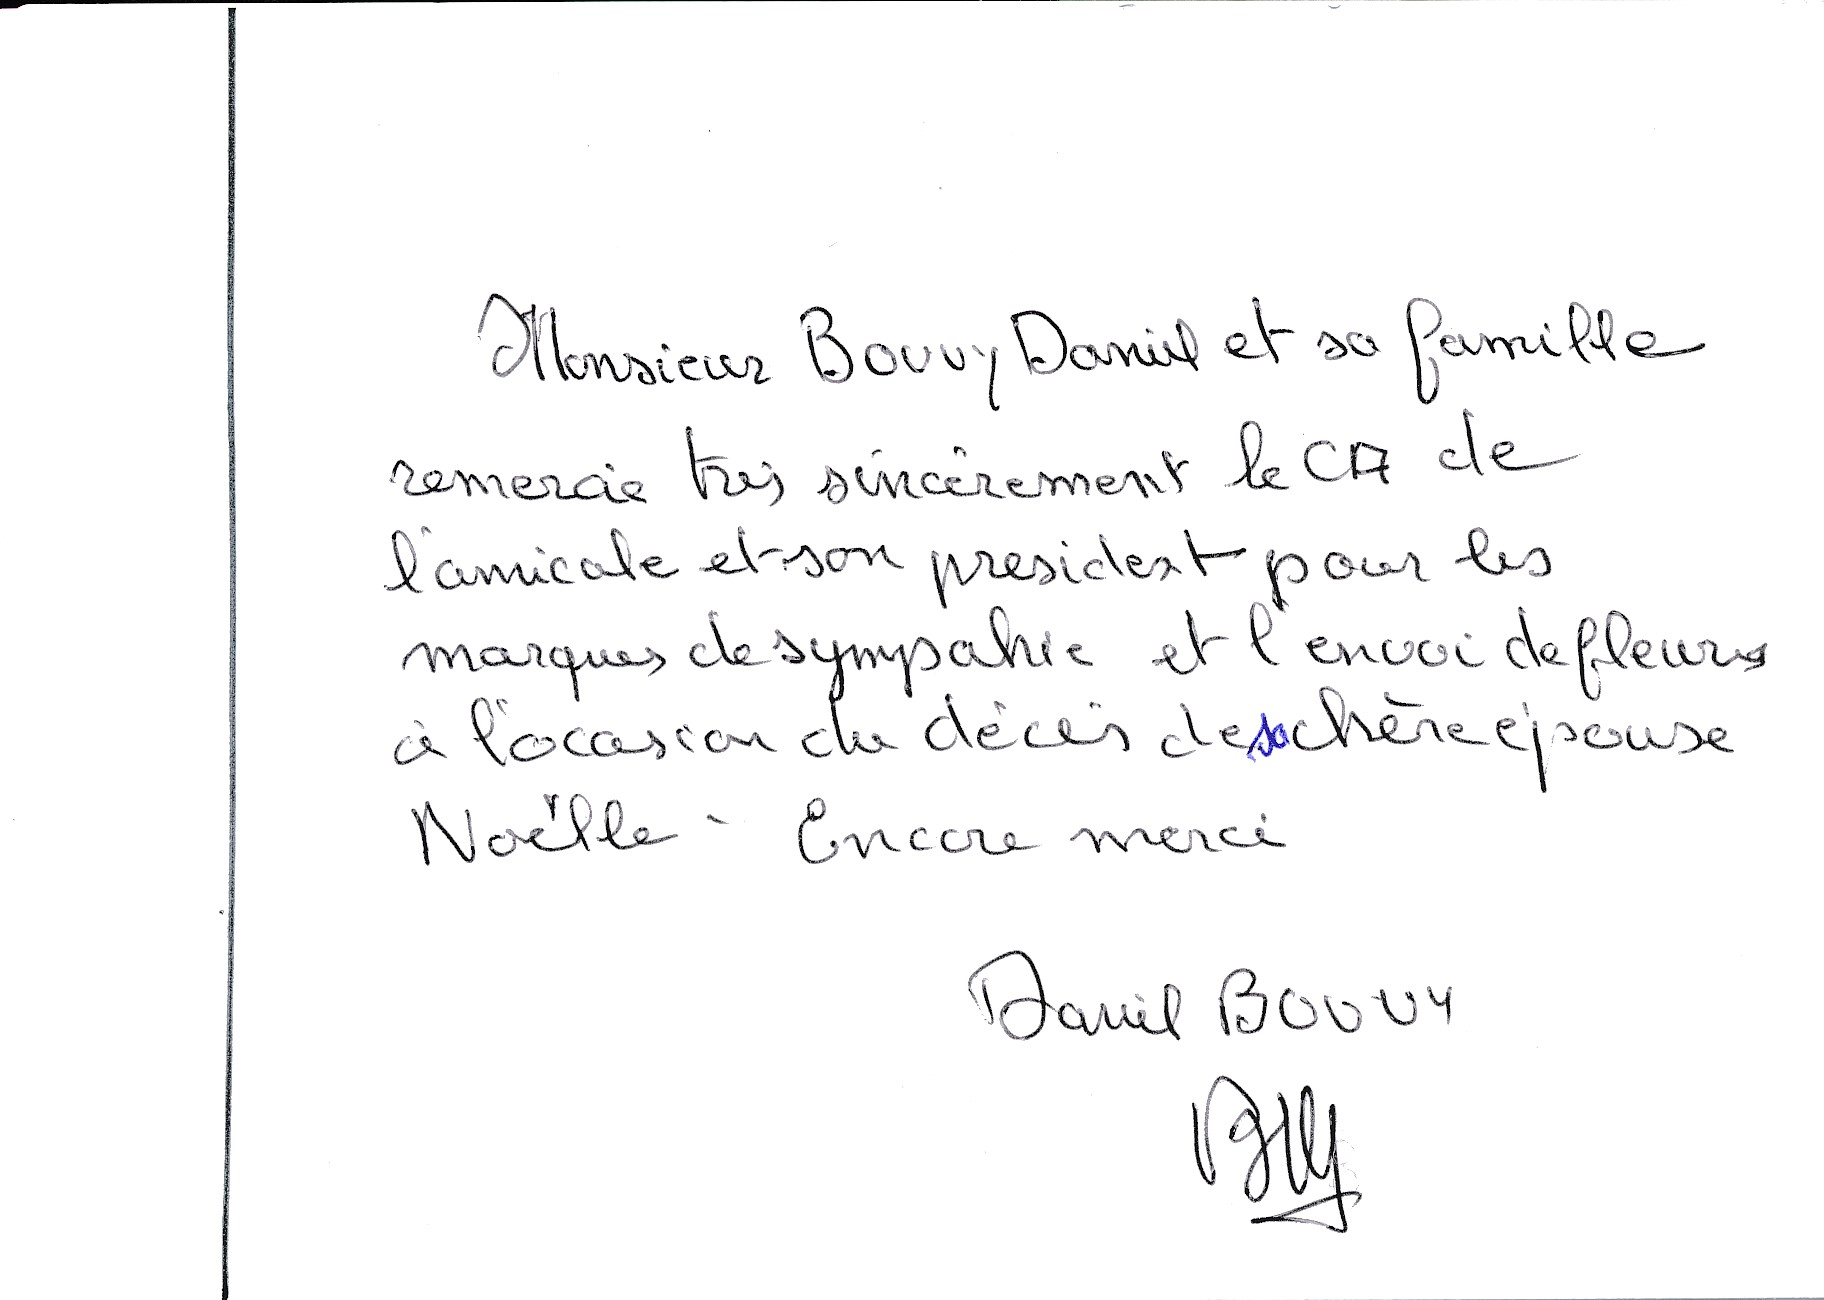 Monsieur Bouvy Daniel et sa famille
remercie très sincèrement le CA de
l'amicale et son president pour les
marques de sympahie et l'envoi de fleurs
à l'occasion du décès de sa chère épouse
Noëlle - Encore merci
Daniel BOUVY